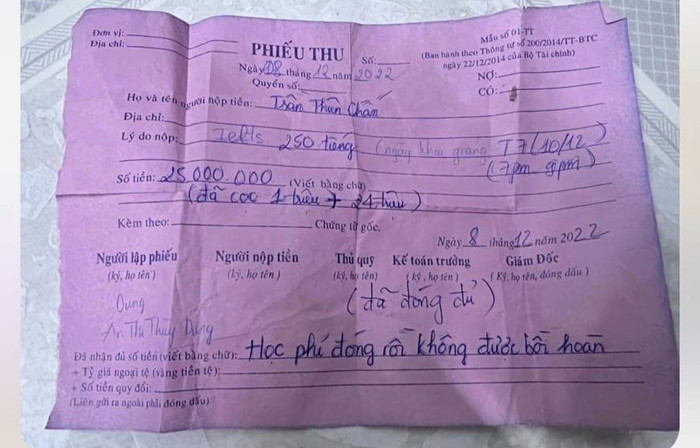 Đơn vị:
Địa chỉ:
Mẫu số 01-TT
(Ban hành theo Thông tư số 200/2014/TT-BTC
ngày 22/12/2014 của Bộ Tài chính)
PHIẾU THU
Số:
Ngày 08 tháng 12 năm 2022
Quyển số:
NỢ:
CÓ:
Họ và tên người nộp tiền: Trần Thiên Chấn
Địa chỉ:
Lý do nộp: Ielts 250 tiếng (ngày khai giảng T7 (10/12)
(7pm 9pm)
Số tiền: 25.000.000 (Viết bằng chữ)
(đã cọc 1 triệu + 24 triệu)
Kèm theo: Chứng từ gốc.
Ngày 8 tháng 12 năm 2022
Người lập phiếu Người nộp tiền Thủ quỹ Kế toán trưởng Giám Đốc
(ký, họ tên) (ký, họ tên) (ký, họ tên) (ký, họ tên) (Ký, họ tên, đóng dấu)
(đã đóng đủ)
Dung
Thị Thuỳ Dung
Đã nhận đủ số tiền (viết bằng chữ): Học phí đóng rồi không được bồi hoàn
+ Tỷ giá ngoại tệ (vàng tiền tệ):
+ Số tiền quy đổi:
(Liên gửi ra ngoài phải đóng dấu)